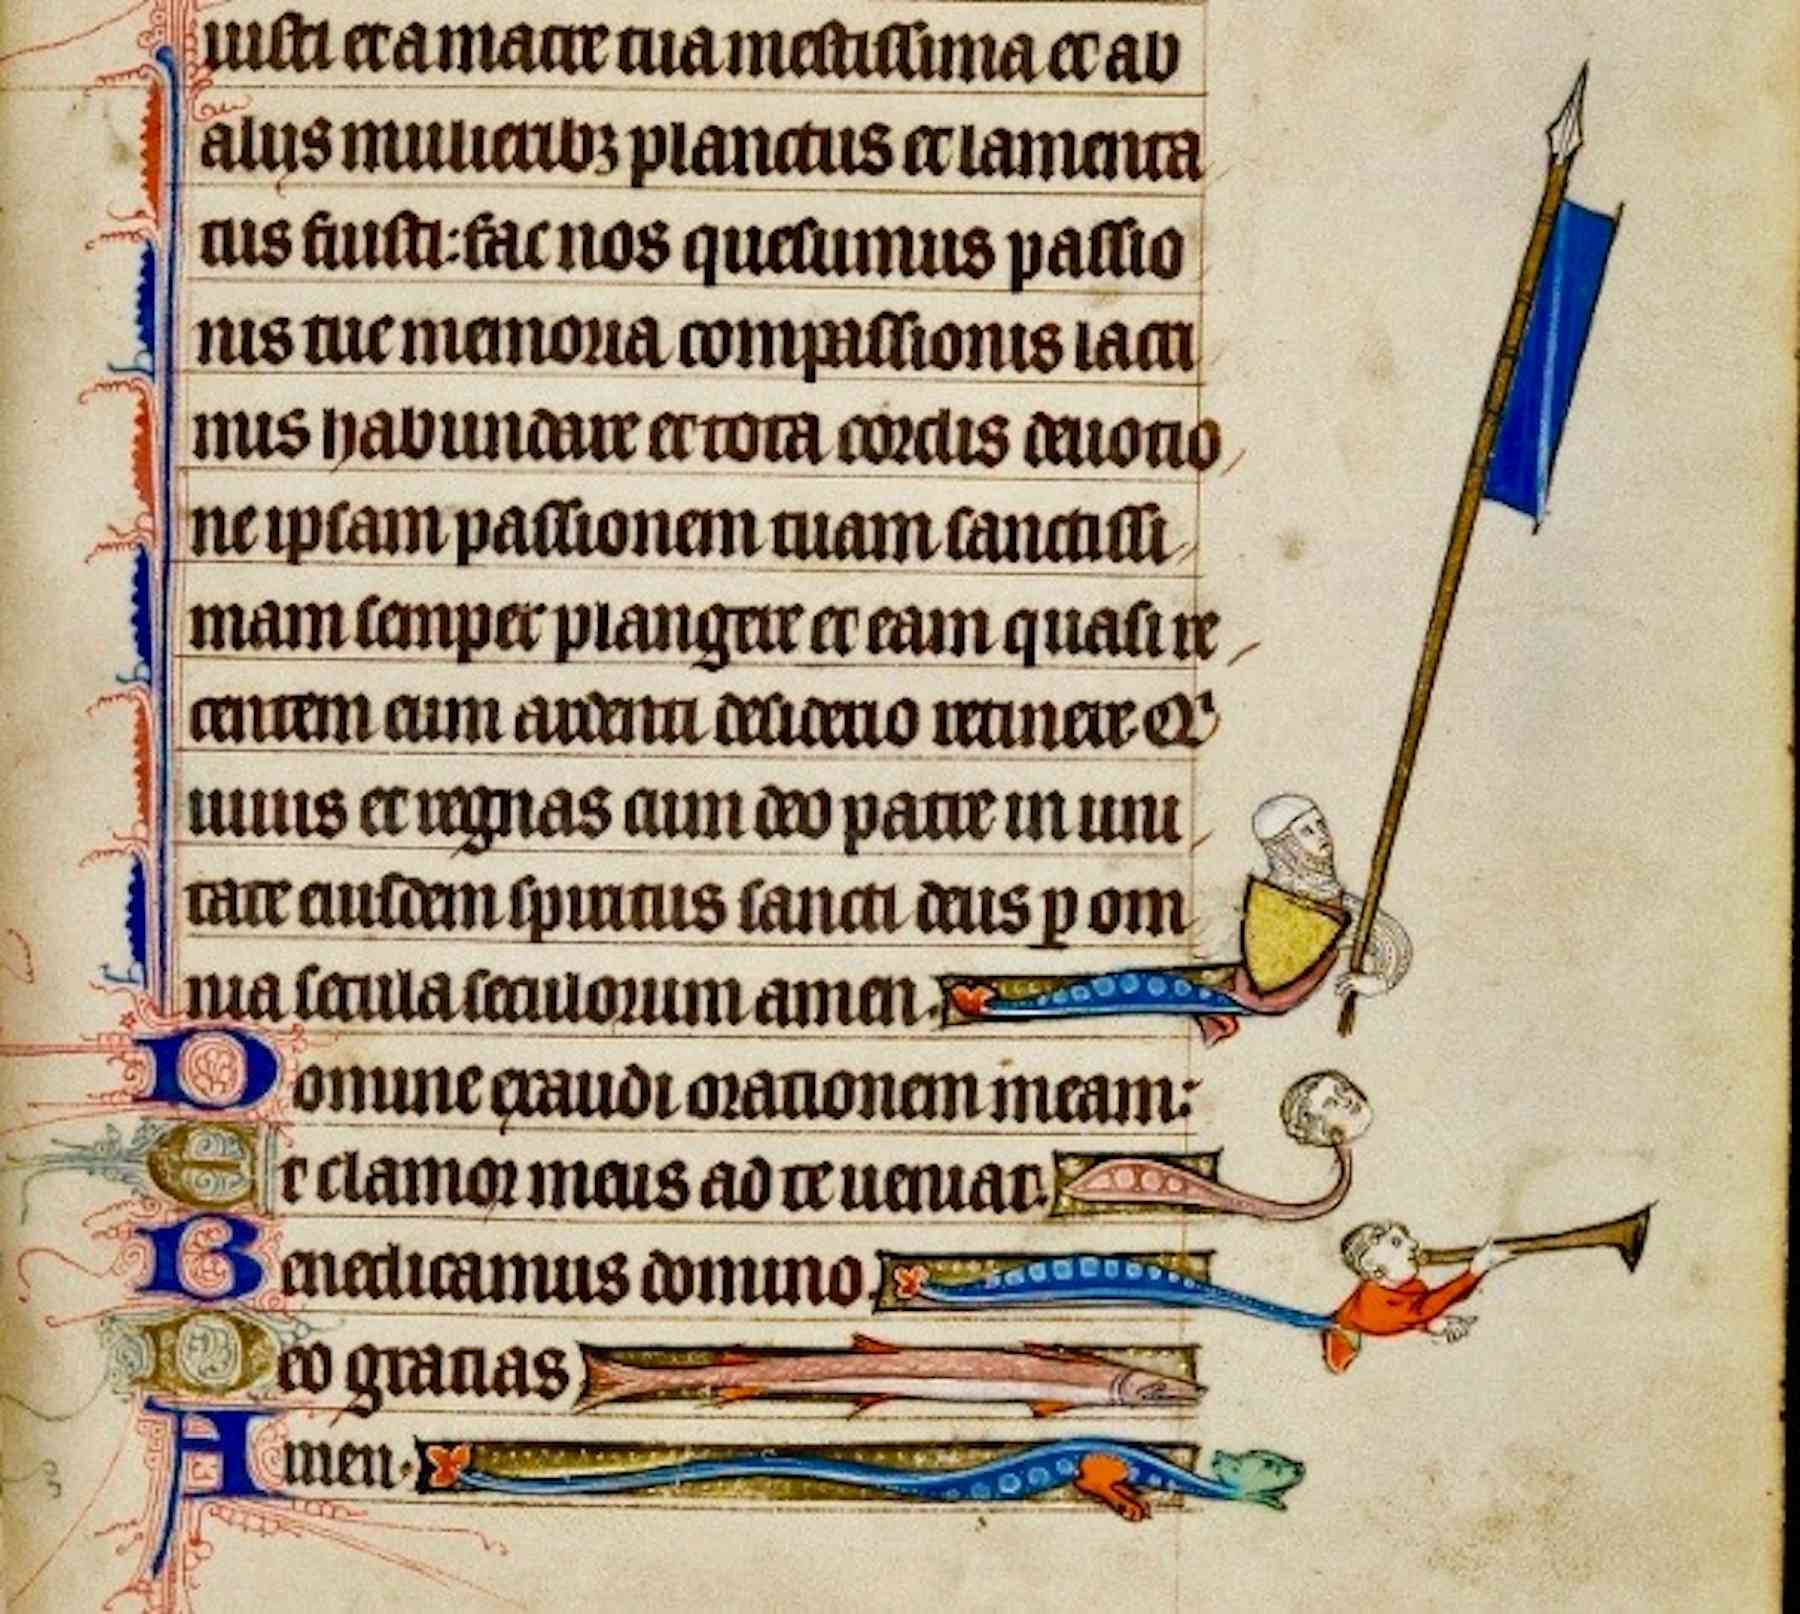 iusti et a matre tua mestissima et ab
alijs mulieribꝫ planctus et lamenta
tus fuisti: fac nos quesumus passio
nis tue memoria compassionis lacri
mis habundare et tota cordis deuotio
ne ipsam passionem tuam sanctissi
mam semper plangere et eam quasi re
centem cum ardenti desiderio retinere. Qi
uiuis et regnas cum deo patre in uni
tate eiusdem spiritus sancti deus ꝑ om
nia secula seculorum amen.
Domine exaudi orationem meam:
Et clamor meus ad te ueniat.
Benedicamus domino.
Deo gracias
Amen.